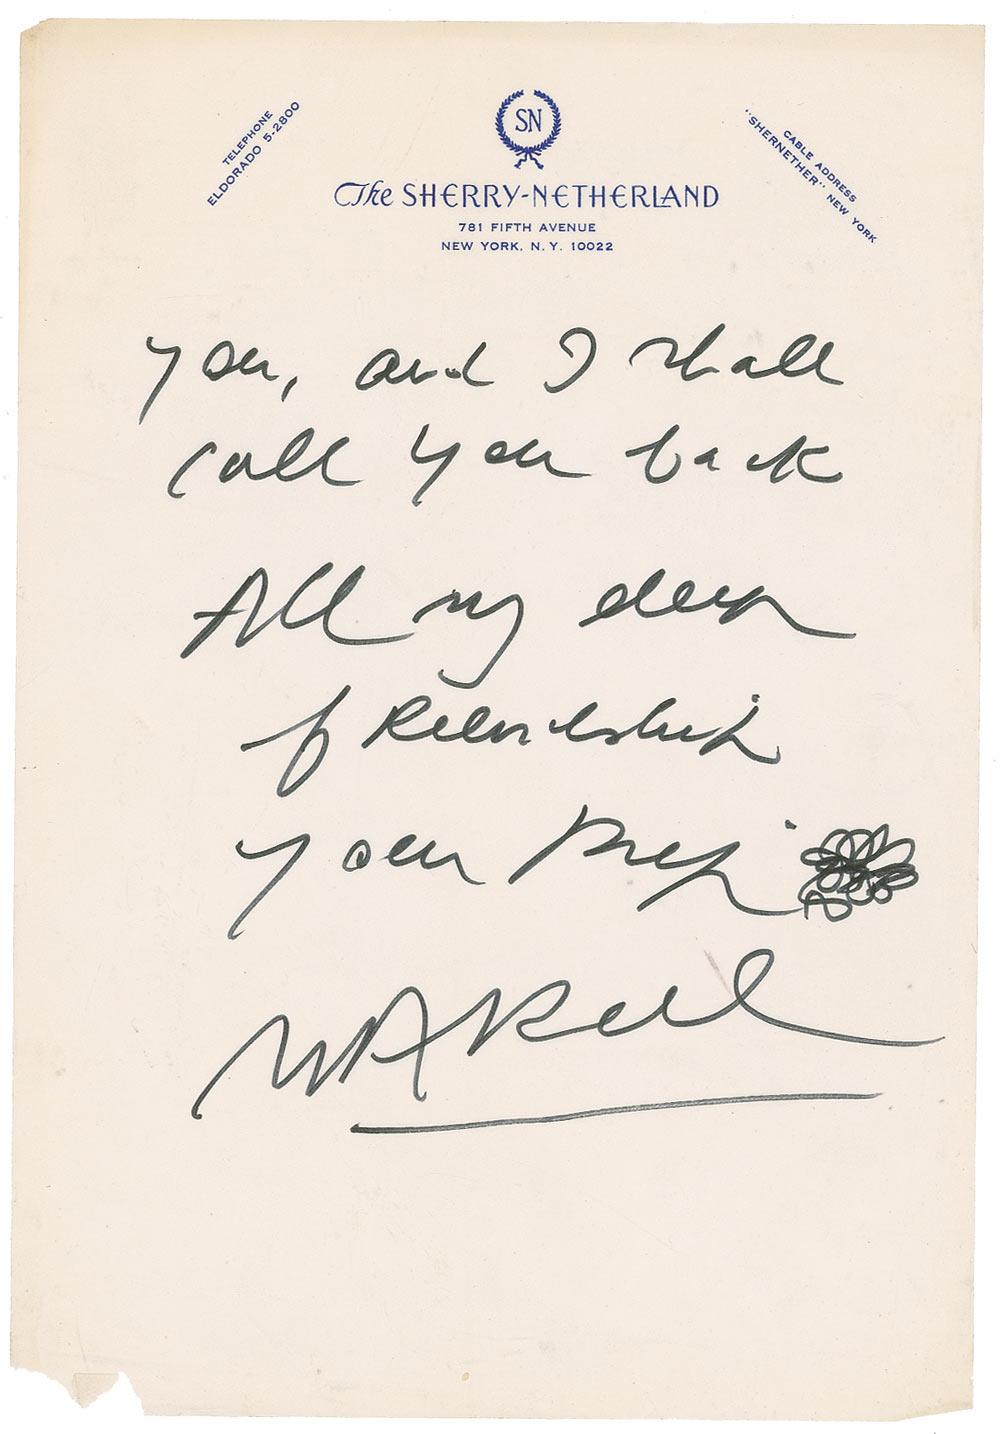 TELEPHONE
ELDORADO 5-2800
SN
The SHERRY-NETHERLAND
781 FIFTH AVENUE
NEW YORK, N.Y. 10022
CABLE ADDRESS
"SHERNETHER" NEW YORK
you, and I shall
call you back
All my deep
friendship
your